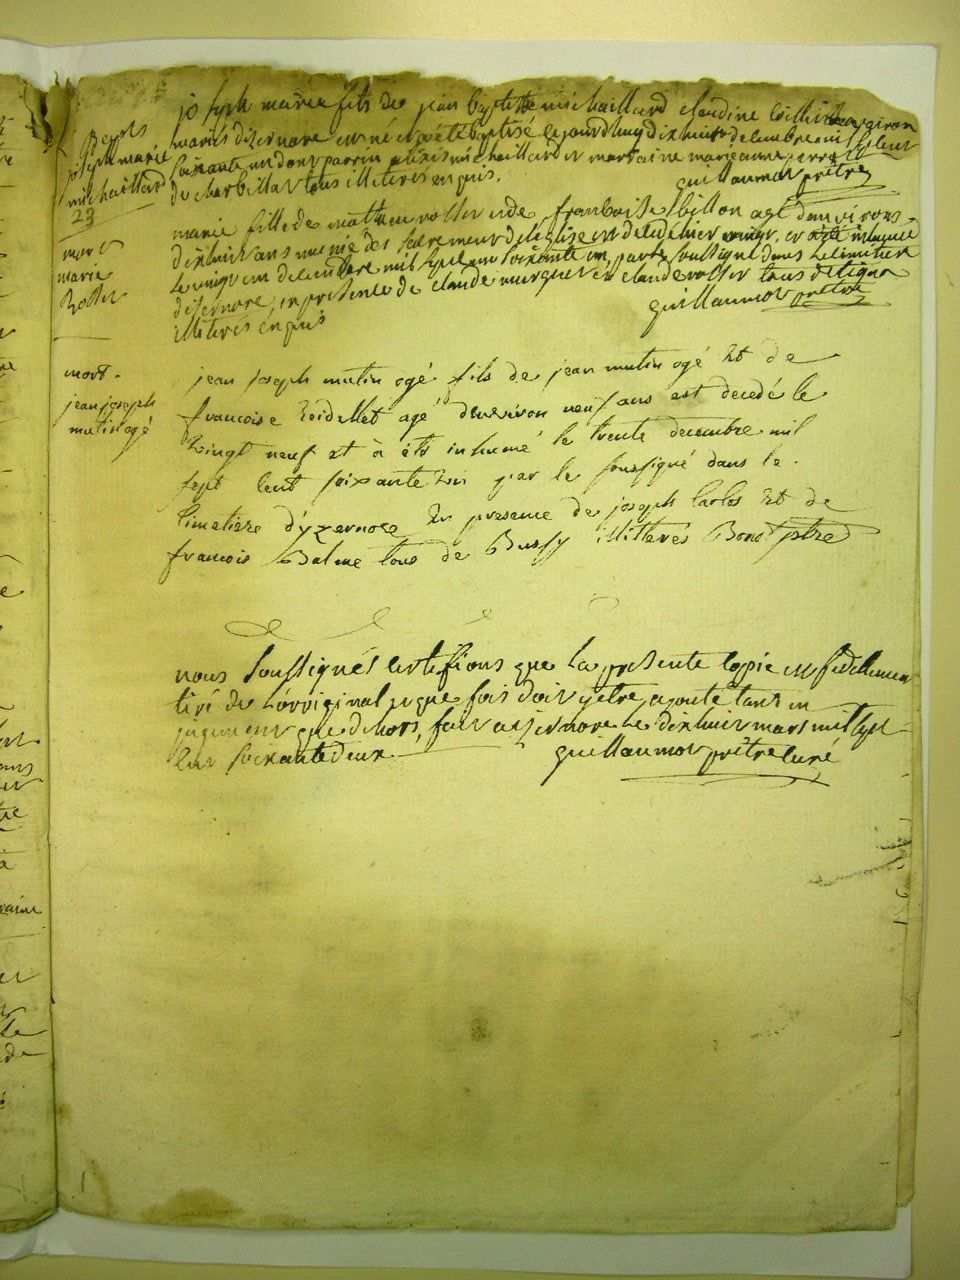 joseph marie fils de jean baptiste michaillard claudine
mariés disernore est né et a été baptisé le jourdhuy dix huit decembre mil sept cent
soixante un dont parrin alexis michaillard et marraine marieanne perret
de charbillat tous illiteres enquis.
guillaumot prêtre
joseph marie
michaillard
23
mort
marie
Rosset
marie fille de mathieu rosset et de françoise billon agé denviron
dixhuit ans munie des sacremens de leglise est decedé hier et a été inhumée
le vingt un decembre mil sept cent soixante un, par le soussigné dans le cimetiere
disernore, en presence de claude murguet et claude rosset tous
illiteres enquis
guillaumot prêtre
mort.
jean joseph
mutin ogé
jean joseph mutin ogé fils de jean mutin ogé Et de
francoise agé denviron neuf ans est decedé le
vingt neuf et à été inhumé le trente decembre mil
sept cent soixante un par le soussigné dans le
cimetiere d'yzernore En presence de joseph carlos Et de
francois Balme tous de Bussy illiteres Bono ptre
nous soussignés certiffions que la presente copie est fidellement
tiré de l'orriginal et que fois doit y être ajouté tant en
jugement que dehors, fait a yzernore le dixhuit mars mil sept
cent soixante deux
guillaumot prêtre curé